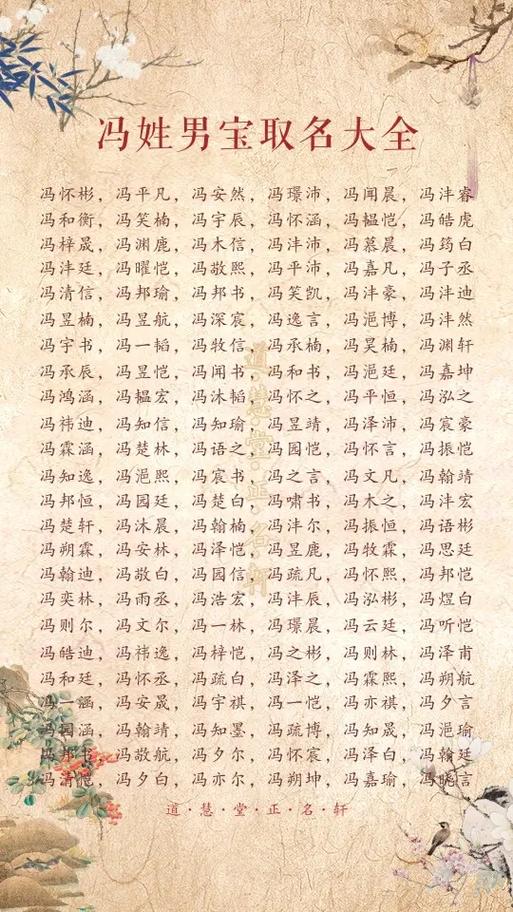 冯姓男宝取名大全
冯怀彬，冯平凡，冯安然，冯璟沛，冯闻晨，冯沣睿
冯和衡，冯笑楠，冯宇辰，冯怀涵，冯韫恺，冯皓虎
冯梓晟，冯渊鹿，冯木信，冯沣沛，冯慕晨，冯筠白
冯沣廷，冯曜恺，冯敬熙，冯平沛，冯嘉凡，冯子丞
冯清信，冯邦瑜，冯邦书，冯笑凯，冯沣豪，冯沣迪
冯昱楠，冯昱航，冯深宸，冯逸言，冯浥博，冯沣然
冯宇书，冯一韬，冯牧信，冯承楠，冯昊楠，冯渊轩
冯承辰，冯昱恺，冯闻书，冯和书，冯浥廷，冯嘉坤
冯鸿涵，冯韫宏，冯沐韬，冯怀之，冯平恒，冯泓之
冯祎迪，冯知信，冯知瑜，冯昱靖，冯泽沛，冯宸豪
冯霖涵，冯楚林，冯语之，冯园恺，冯怀言，冯振恺
冯知逸，冯浥熙，冯宸书，冯之言，冯文凡，冯翰靖
冯邦恒，冯园廷，冯楚白，冯啸书，冯木之，冯沣宏
冯楚轩，冯沐晨，冯翰楠，冯沣尔，冯振恒，冯语彬
冯朔霖，冯安林，冯泽恺，冯昱鹿，冯牧霖，冯思廷
冯翰迪，冯敬白，冯园信，冯疏凡，冯怀熙，冯邦恺
冯奕林，冯雨丞，冯浩宏，冯沣辰，冯泓彬，冯煜白
冯则尔，冯文尔，冯一林，冯璟晨，冯云廷，冯听恺
冯皓迪，冯祎逸，冯梓恺，冯之彬，冯则林，冯泽甫
冯和廷，冯怀丞，冯疏白，冯泽之，冯霖熙，冯朔航
冯一涵，冯安晟，冯宇祺，冯一恺，冯亦祺，冯夕言
冯园涵，冯翰靖，冯知墨，冯疏博，冯知晟，冯浥瑜
冯邦书，冯敬航，冯夕尔，冯怀宸，冯泽白，冯翰廷
冯清恺，冯夕白，冯亦尔，冯朔坤，冯嘉瑜，冯晓言
道·慧·堂·正·名·轩
道·慧·堂·正·名·轩